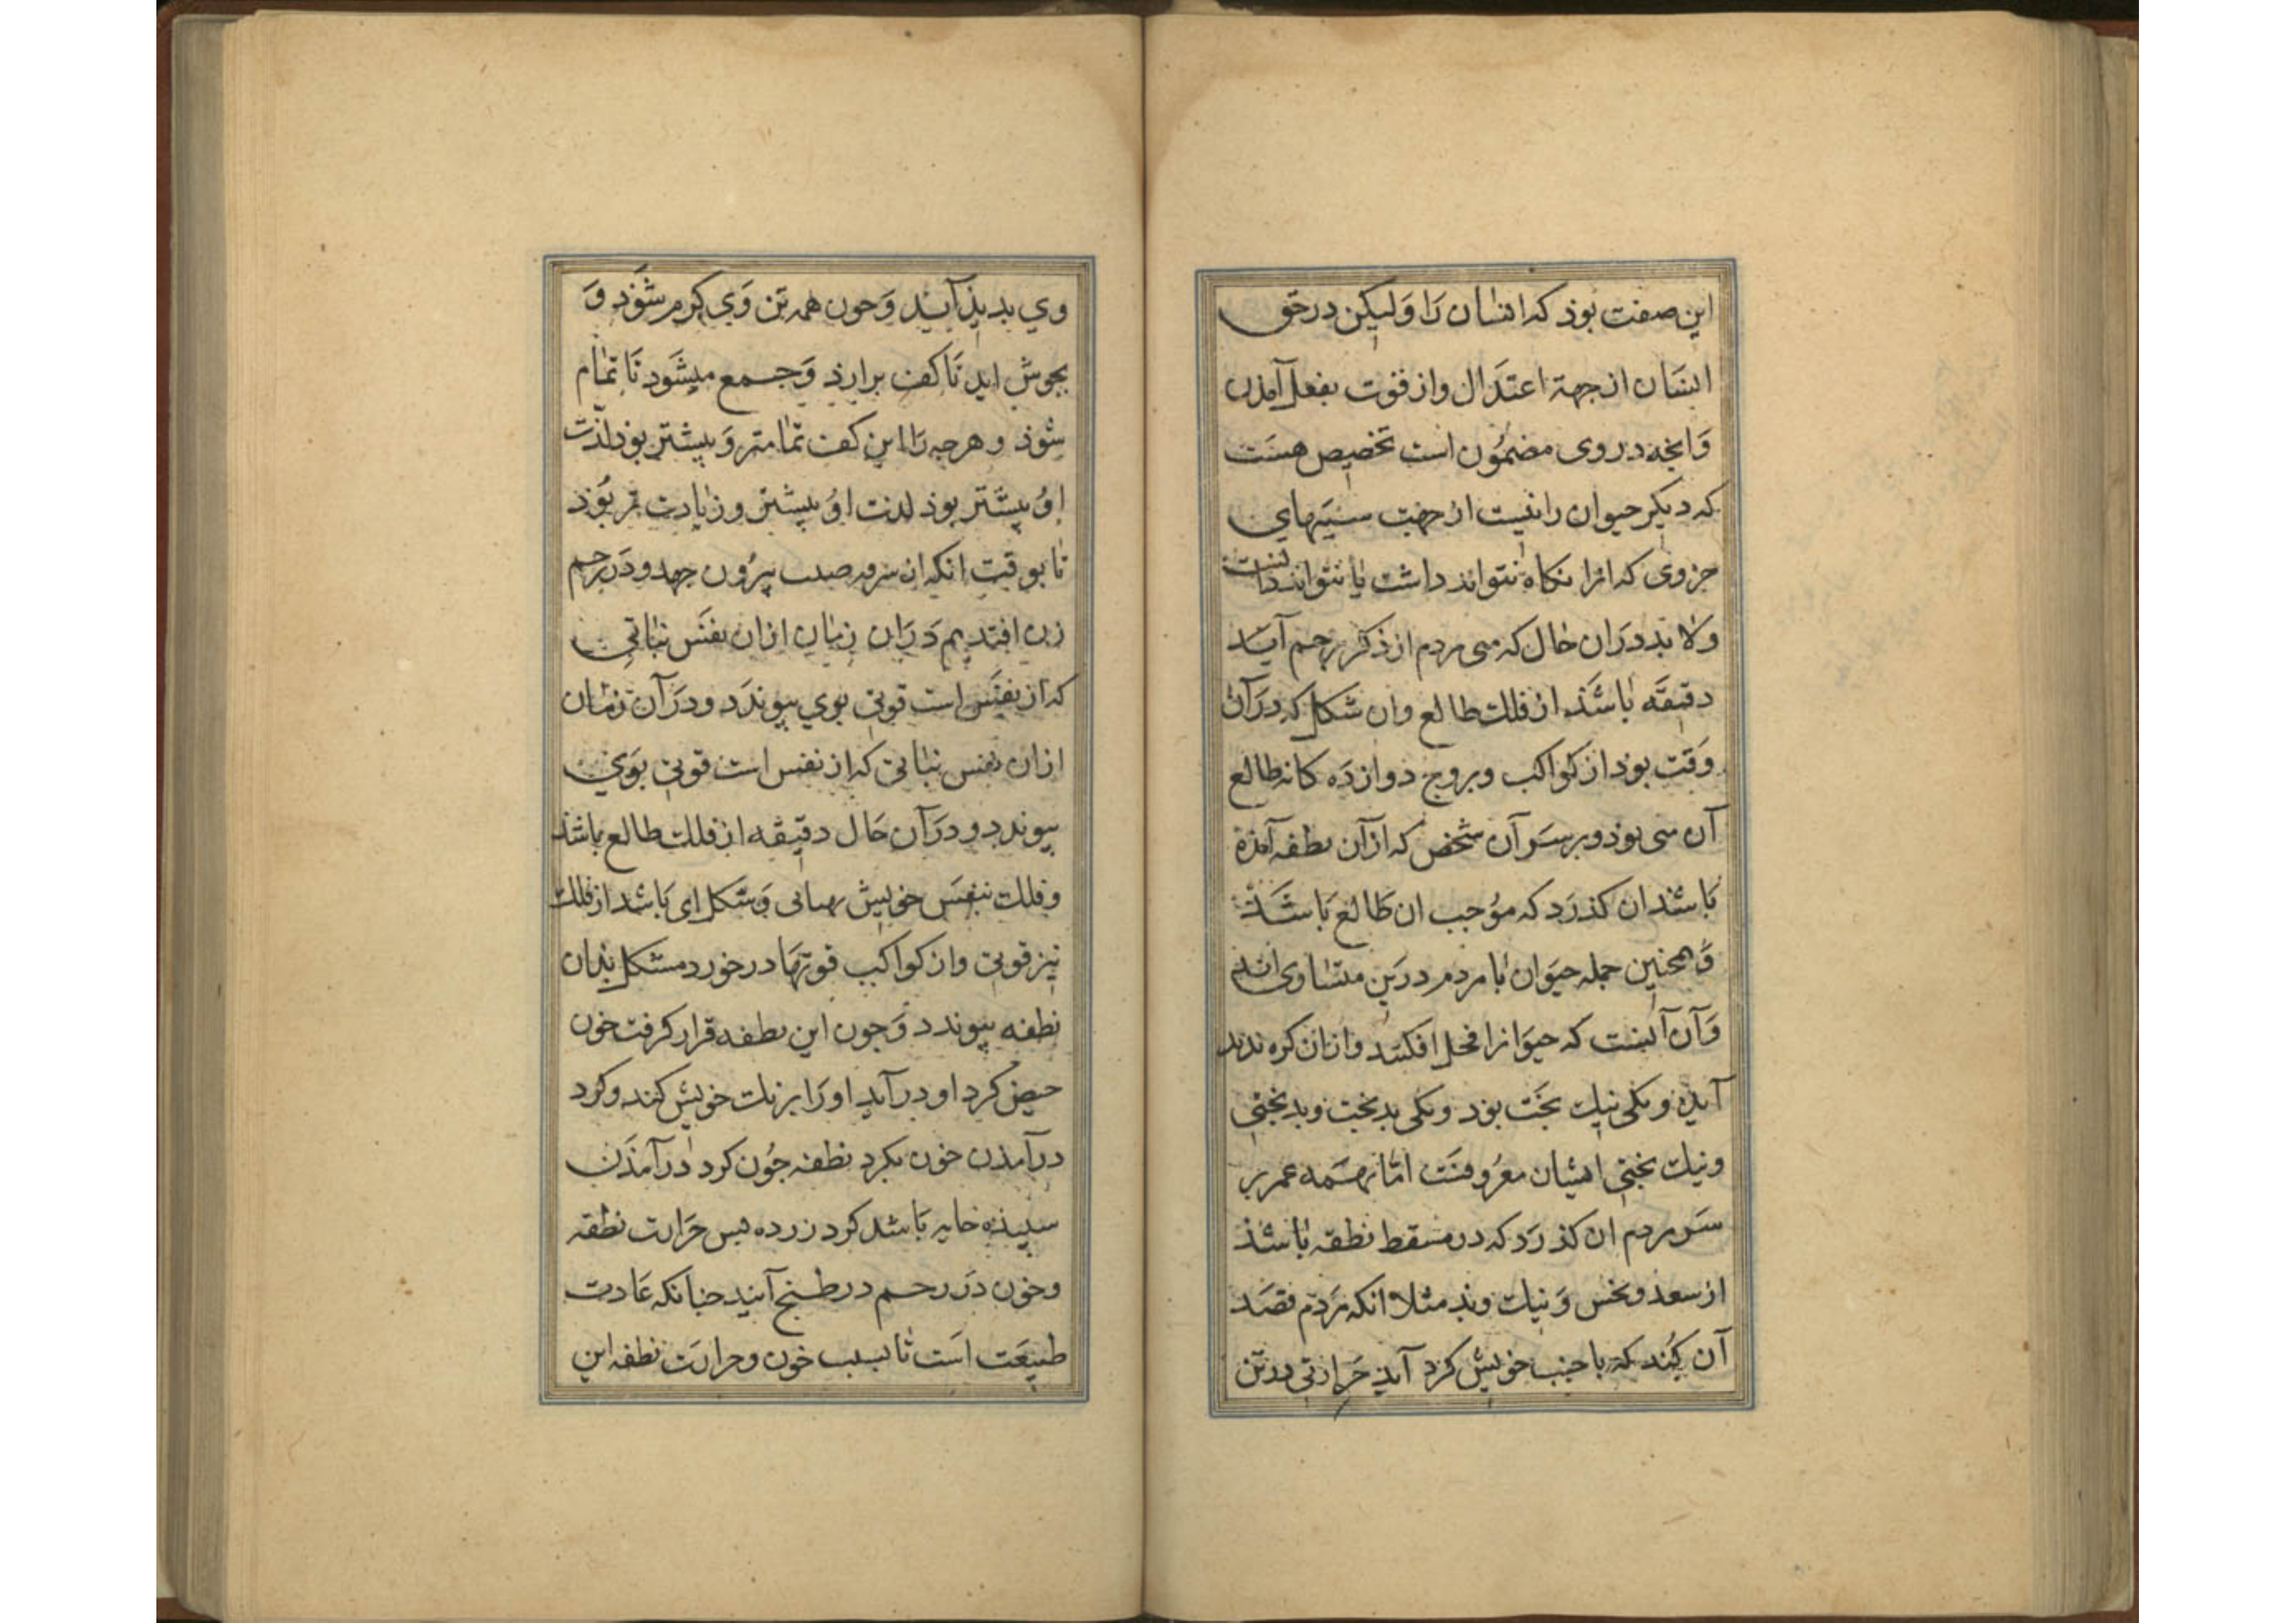 این صفت بوذ که انسان را ولیکن در حق
انسان از جهة اعتدال واز قوت بفعل آمذن
وانچه در وی مضمون است تخصیص هست
که دیکر حیوان را نیست از جهت سببهای
جزوی که انرا نکاه نتواند داشت یا نتواند دانست
ولا بد دران حال که منی مردم از ذکر برحم آید
دقیقه باشذ از فلك طالع وان شکل که در آن
وقت بوذ از کواکب وبروج دوازده کانه طالع
آن منی بوذ وبر سر آن شخص که از آن نطفه آمذه
باشند ان کذرد که موجب ان طالع باشد
وهمچنین جمله حیوان با مردم درین متساوی اند
وآن آنست که حیوانرا فحل افکند وازان کره ندید
آیذه ویکی نیك بخت بوذ ویکی بدبخت وبدبختی
ونیك بختی ایشان معروفست اما بهمه عمر بر
سر مردم ان کذرد که در مسقط نطفه باشذ
از سعد ونحس ونیك وبذ مثلا انکه مردم قصد
آن کند که با جنب خویش کرد آید حرارتی در تن
وی بدیذ آید وچون همه تن وی کرم شوذ و
بجوش اید تا کف برارذ وجمع میشود تا تمام
شوذ وهرچه را این کف تمامتر وبیشتر بوذ لذت
او بیشتر بوذ لذت او بیشتر وزیادت تر بوذ
تا بوقت انکه ان سرمه صلب بیرون جهد ودر رحم
زن افتد هم دران زمان ازان نفس نباتی
که از نفس است قوتی بوی پیوندد ودر آن زمان
ازان نفس نباتی که از نفس است قوتی بوی
پیوندد ودر آن حال دقیقه از فلك طالع باشذ
وفلك بنفس خویش وشکل ای باشد از فلك
نیز قوتی وان کواکب قوتها در خورد مشکل بذان
نطفه پیوندد وچون این نطفه قرار کرفت خون
حیض کرد او در آید او را برنك خویش کند وکرد
در آمذن خون بکرد نطفه چون کرد در آمذن
سپیذه خایه باشد کرد زرده پس حرارت نطفه
وخون در رحم در طبخ آیند چنانکه عادت
طبیعت است تا بسبب خون وحرارت نطفه این